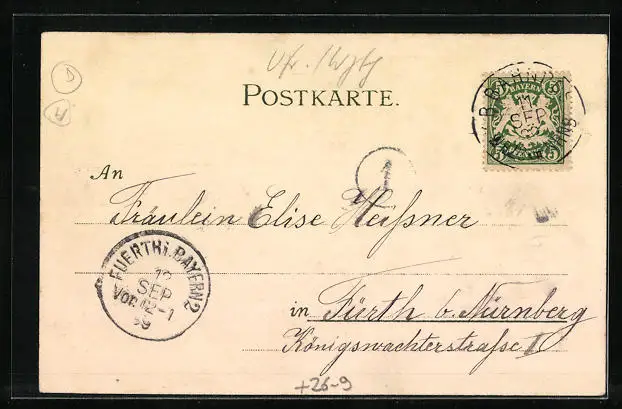 POSTKARTE.
BAYERN
11
SEP
An
1
Fräulein Elise Heißner
FUERTH I. BAYERN 2
12
SEP
Vor. 12-1
99
in Fürth b. Nürnberg
Königswachterstraße II
+26-9